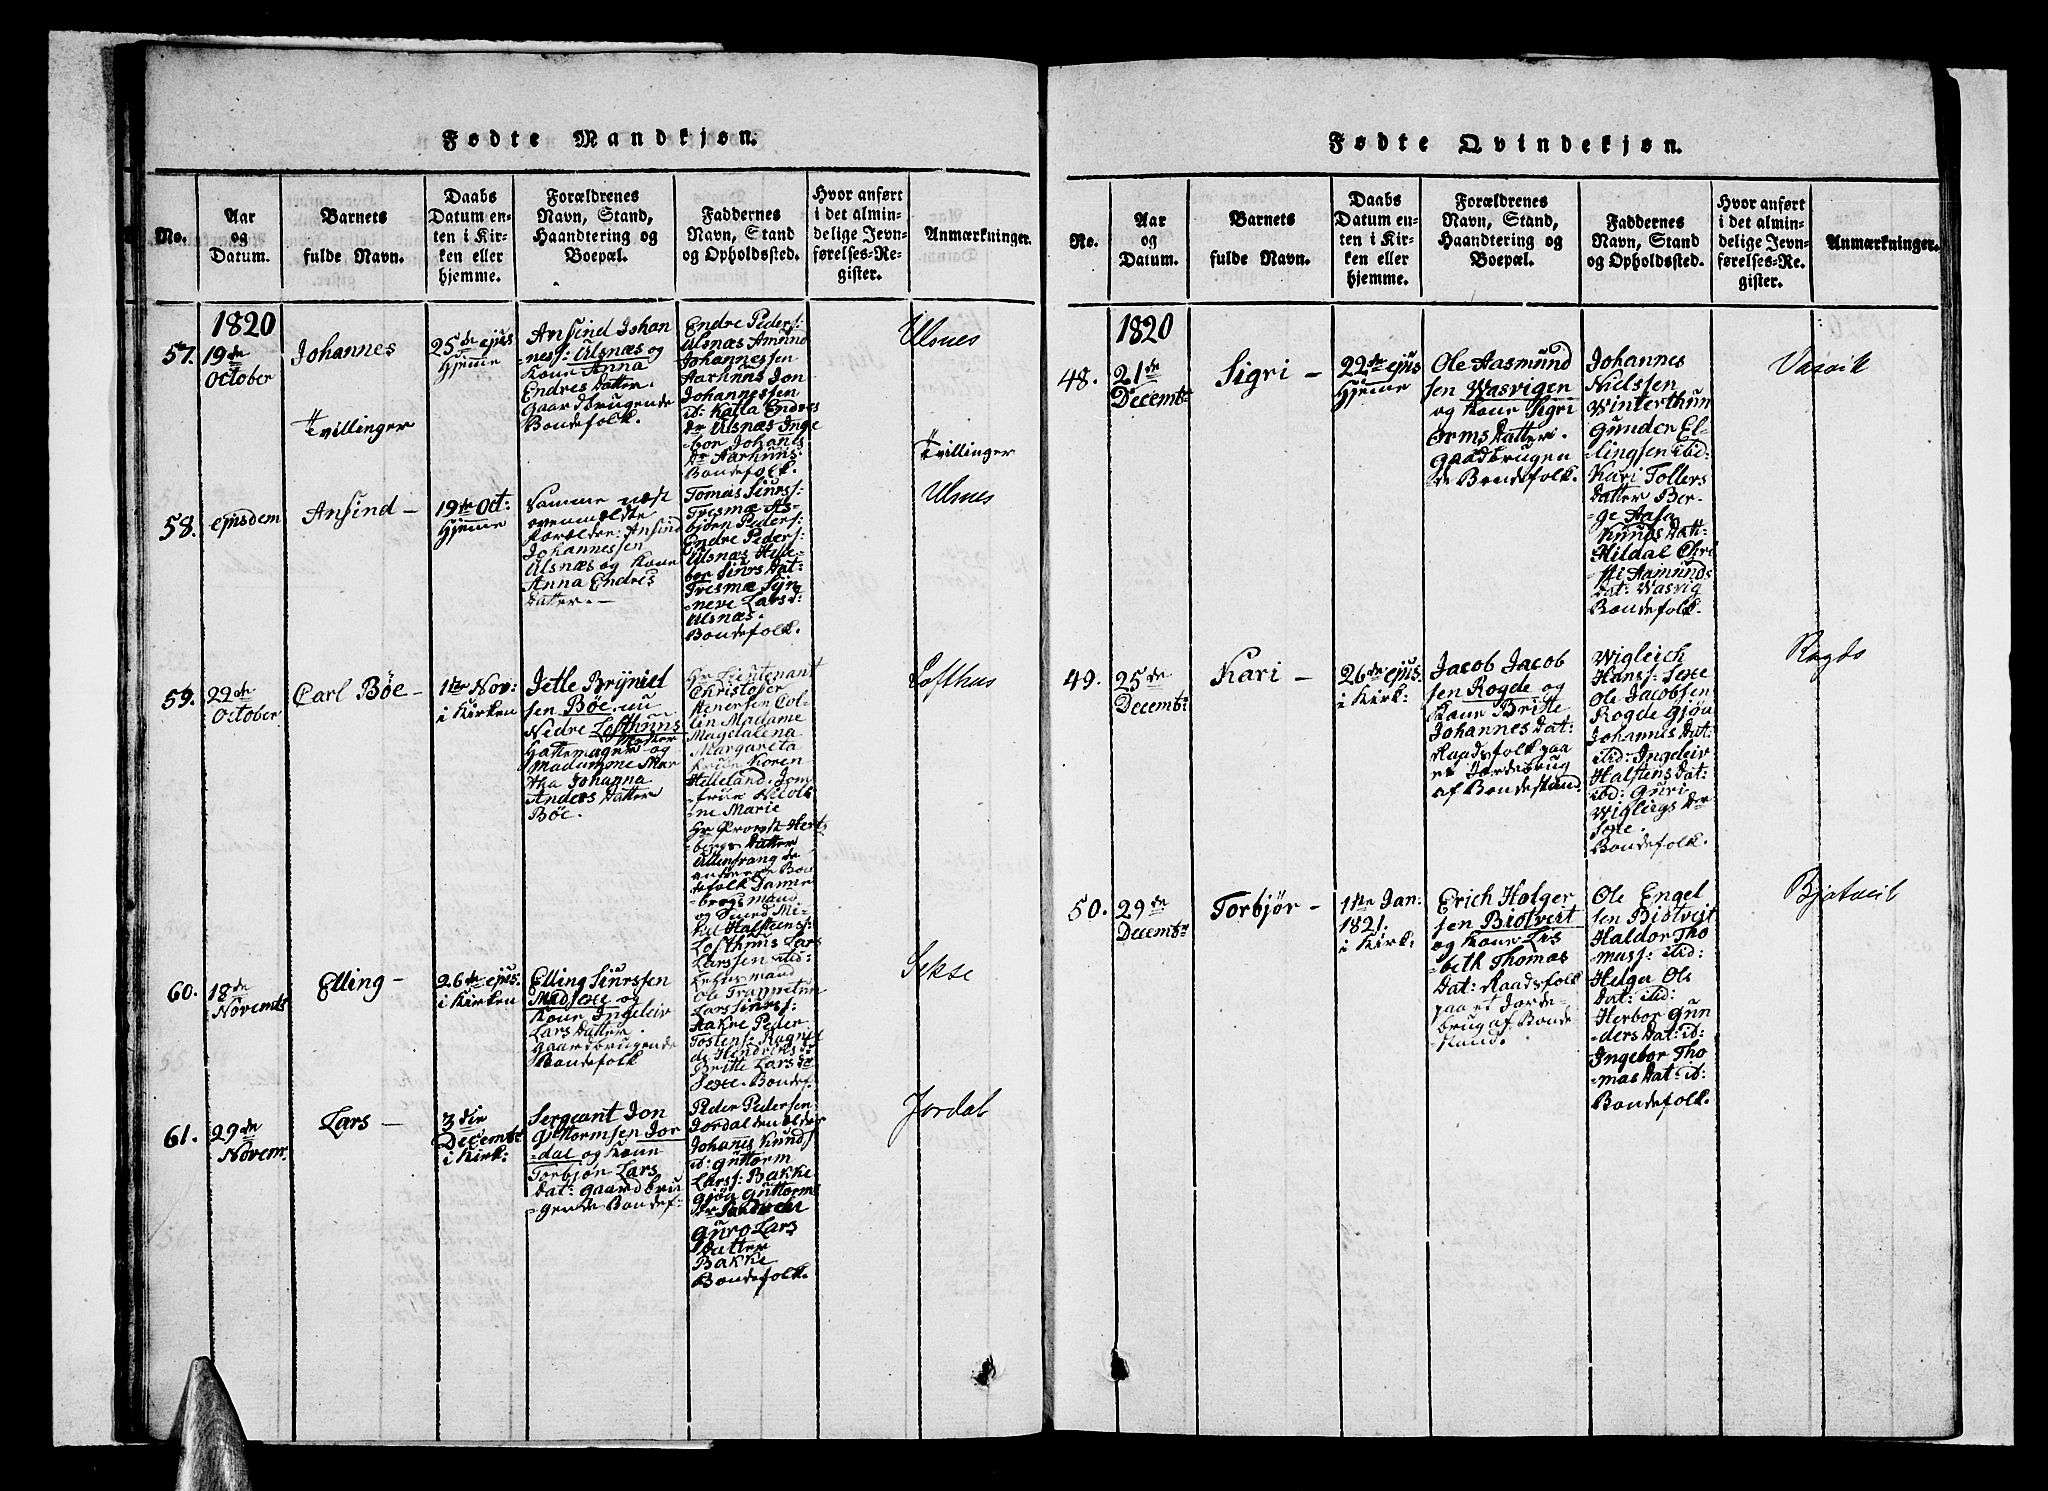 Fødte Mandkjøn.
No.
Aar
og
Datum.
Barnets
fulde Navn.
Daabs
Datum en-
ten i Kir-
ken eller
hjemme.
Forældrenes
Navn, Stand,
Haandtering og
Boepæl.
Faddernes
Navn, Stand
og Opholdssted.
Hvor anført
i det almin-
delige Jevn-
førelses-Re-
gister.
Anmærkninger.
1820
57.
19de
October
Johannes
Tvillinger
25de ejus
Hjeme
Ansind Johan
ness: Ulsnæs og
Kone Anna
Endres Datter.
gaardbrugende
Bondefolk.
Endre Peders:
Ulsnæs Amund
Johannessen
Aarhuus Jon
Johannessen
id: Katla Endres
Dr Ulsnæs Inge
bor Johanes
Dr Aarhuus.
Bondefolk.
Ulsnes
Tvillinger
58.
ejusdem
Ansind —
19de Oct:
Hjeme
Samme næst
ovenmeldte
Forælder: Ansind
Johannessen
Ulsnæs og Kone
Anna Endres
Datter. —
Tomas Siurss:
Tresmæ As-
bjørn Peders:
Endre Peders:
Ulsnæs Her-
bor Siurs Dat-
Tresmæ Syn-
neve Lars d:
Ulsnæs.
Bondefolk.
Ulsnes
59.
29de
October
Carl Böe —
1ste Nov:
i Kirken
Jetle Bryniel
sen Böe. nu
Nedre Lofthuus
Hattemager og
Madamme Mar
tha Johanna
Anders Datter
Böe.
Hr Lieutenant
Christofer
Henersen Col-
lin Madame
Magdalena
Margareta
Koren
Helleland. Jom
frue Nicoli
ne Marie
Hr Provst Herts
bergs Datter
Ullensvang de
andre Bon
defolk Danne
brogs mand
og Smed Mi-
kel Halsteens:
Lofthuus Lars
Larssen ibid:
Lofthus
60.
18de
Novembr
Elling —
26de ejus.
i Kirken
Elling Siurssen
Midsexe og
Kone Ingeleiv
Lars Datter.
gaardbrugende
Bondefolk
Lehnsmand
Ole Trappetun
Lars Siurss:
Aakre Peder
Tostens: Ragnil
de Hendriks d:
Britte Lars dr
Sexe. Bondef.
Sekse
61.
29de
Novem.
Lars —
3die
Decembr
i Kirk:
Sergeant Jon
Guttormsen Jor
dal og Kone
Torbjør Lars
Dat: gaardbru
gende Bondef:
Peder Pedersen
Jordal den ælder
Johanes Knuds
id: Guttorm
Larss: Bakke
Gjøa Guttorms
Dr
Guro Lars
Datter
Bakke
Bondefolk.
Jordal
Fødte Qvindekjøn.
No.
Aar
og
Datum.
Barnets
fulde Navn.
Daabs
Datum en-
ten i Kir-
ken eller
hjemme.
Forældrenes
Navn, Stand,
Haandtering og
Boepæl.
Faddernes
Navn, Stand
og Opholdssted.
Hvor anført
i det almin-
delige Jevn-
førelses-Re-
gister.
Anmærkninger.
1820
48.
21de
Decembr
Sigri —
22de ejus
Hjeme
Ole Aasmund
sen Wasvigen
og Kone Sigri
Orms Datter.
gaadbrugen
de Bondefolk.
Johannes
Nielssen
Winterthun
Gunder El-
lingsen ibd:
Kari Tollers
Datter Ber-
ge Aasa
Knuds Datt-
Hildal Chri
sti Aamunds
Dat: Wasvig
Bondefolk.
Vasvik
49.
25de
Decembr
Kari —
26de ejus.
i Kirk:
Jacob Jacob
sen Rogde og
Kone Britte
Johannes Dat:
Raadsfolk paa
et Jordebrug
af Bondestand.
Wigleich
Hanss: Sexe
Ole Jacobsen
Rogde Gjøa
Johannis Dat:
ibid: Ingeleiv
Halstens Dat:
ibd: Guri
Wigleigs Dr
Sexe.
Bondefolk.
Rogde
50.
29de
Decembr
Torbjør —
1ste Jan:
1821.
i Kirk:
Erich Holger
sen Biotveit
og Kone Lis
beth Thomas
Dat: Raadsfolk
paa et Jorde-
brug af Bonde
stand.
Ole Engel
sen Biotveit
Haldor Tho
mass: ibid:
Helga Ole
Dat: ibid:
Herbor Gun
ders Dat: id:
Ingebor Tho
mas Dat: id:
Bondefolk.
Bjotveit